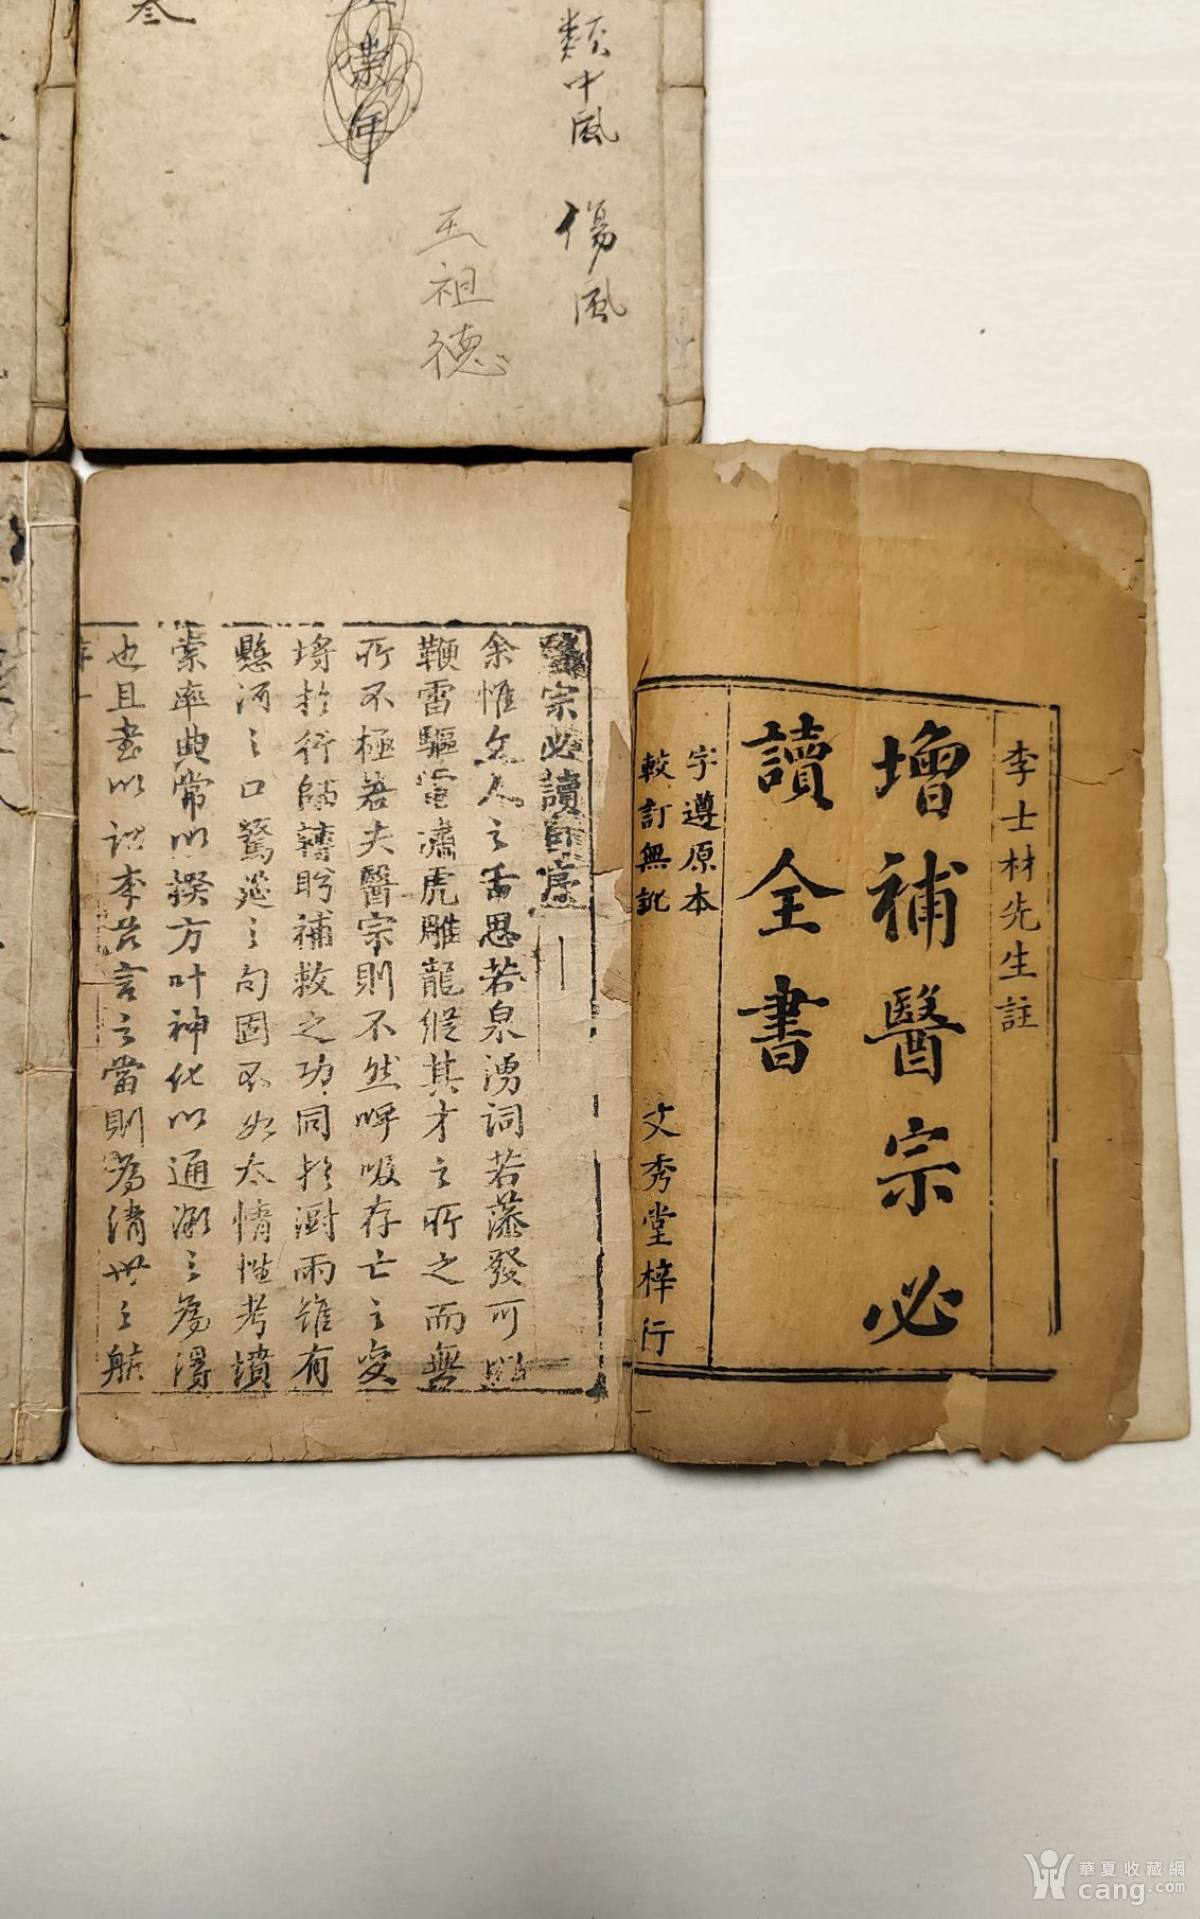 叁
業年
類中風 傷風
王祖德
李士材先生註
增補醫宗必
讀全書
字遵原本
較訂無訛
文秀堂梓行
醫宗必讀
余惟文人之舌思若泉湧詞若藻發可以
鞭雷驅電繡虎雕龍縱其才之所之而無
所不極若夫醫宗則不然呼吸存亡之変
埓於行師轉盻補救之功同於澍雨雖有
懸河之口驚筵之句固不如本情性考墳
索率典常以揆方叶神化以通微之為得
也且盡以詔李君言之當則為済世之航
華夏收藏網
cang.com